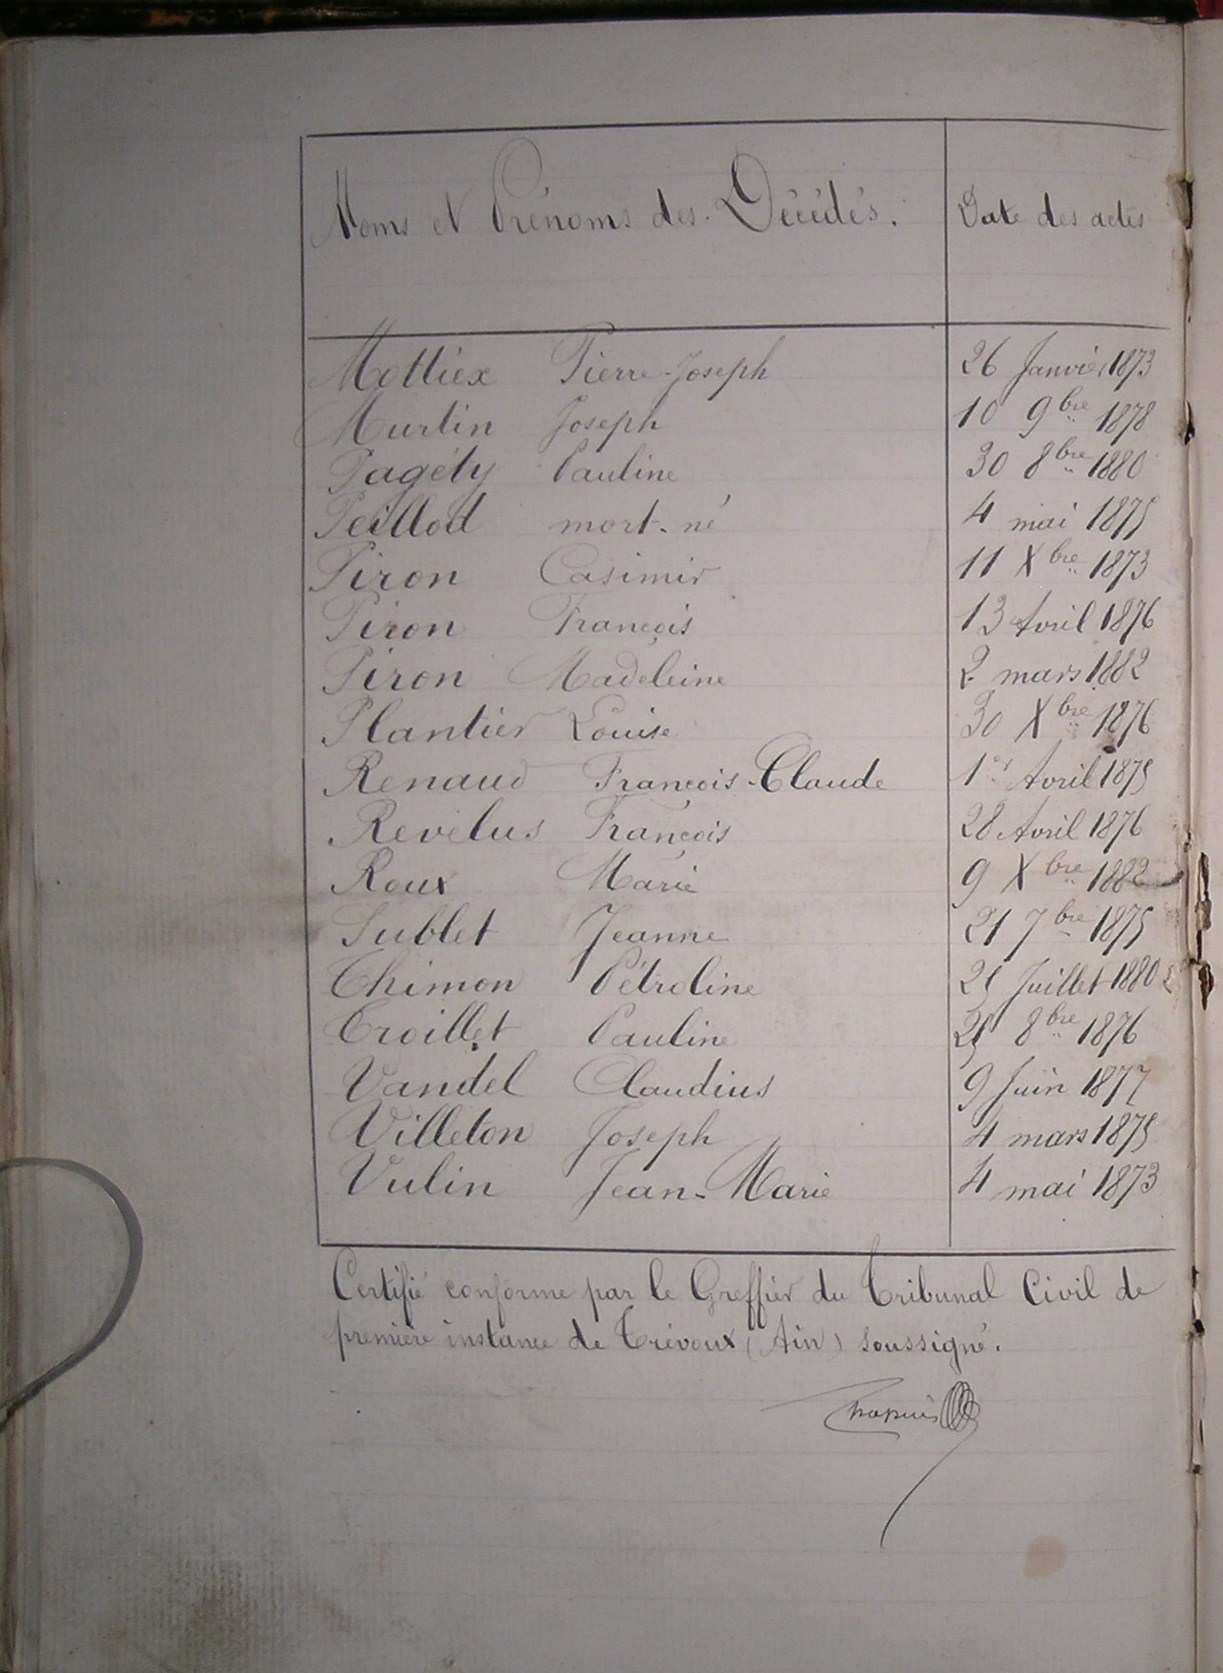 Noms et Prénoms des Décédés. Date des actes
Mottiex Pierre-Joseph 26 Janvier 1873
Murtin Joseph 10 9bre 1878
Pagéty Pauline 30 8bre 1880
Peillod mort-né 4 mai 1875
Piron Casimir 11 Xbre 1873
Piron François 13 Avril 1876
Piron Madeleine 2 mars 1882
Plantier Louise 30 Xbre 1876
Renaud François-Claude 1er Avril 1875
Revelus François 28 Avril 1876
Roux Marie 9 Xbre 1882
Sublet Jeanne 21 7bre 1875
Thimon Pétroline 25 Juillet 1880
Troillet Pauline 25 8bre 1876
Vandel Claudius 9 Juin 1877
Villeton Joseph 4 mars 1875
Vulin Jean-Marie 4 mai 1873
Certifié conforme par le Greffier du Tribunal Civil de
première instance de Trévoux (Ain) soussigné.